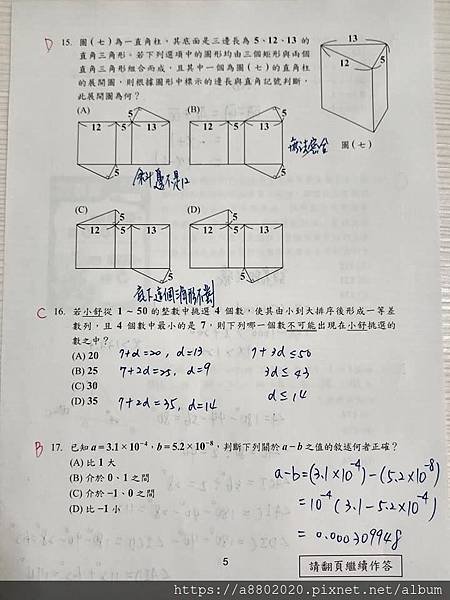 D 15. 圖(七)為一直角柱,其底面是三邊長為 5、12、13 的
直角三角形。若下列選項中的圖形均由三個矩形與兩個
直角三角形組合而成,且其中一個為圖(七)的直角柱
的展開圖,則根據圖形中標示的邊長與直角記號判斷,
此展開圖為何?
13
12 5
圖(七)
(A) (B)
5 5
12 5 13 12 5 13
無法密合
斜邊不是12
(C) (D)
5 5
12 5 13 12 5 13
底下這個三角形不對
C 16. 若小舒從 1~50 的整數中挑選 4 個數,使其由小到大排序後形成一等差
數列,且 4 個數中最小的是 7,則下列哪一個數不可能出現在小舒挑選的
數之中?
(A) 20 7+d=20, d=13 7+3d≤50
(B) 25 7+2d=25, d=9 3d≤43
(C) 30 d≤14
(D) 35 7+2d=35, d=14
B 17. 已知 a=3.1×10⁻⁴,b=5.2×10⁻⁸,判斷下列關於 a-b 之值的敘述何者正確?
(A) 比 1 大 a-b=(3.1×10⁻⁴)-(5.2×10⁻⁸)
(B) 介於 0、1 之間 =10⁻⁴(3.1-5.2×10⁻⁴)
(C) 介於 -1、0 之間 =0.000309948
(D) 比 -1 小
5
請翻頁繼續作答
https://a8802020.pixnet.net/album